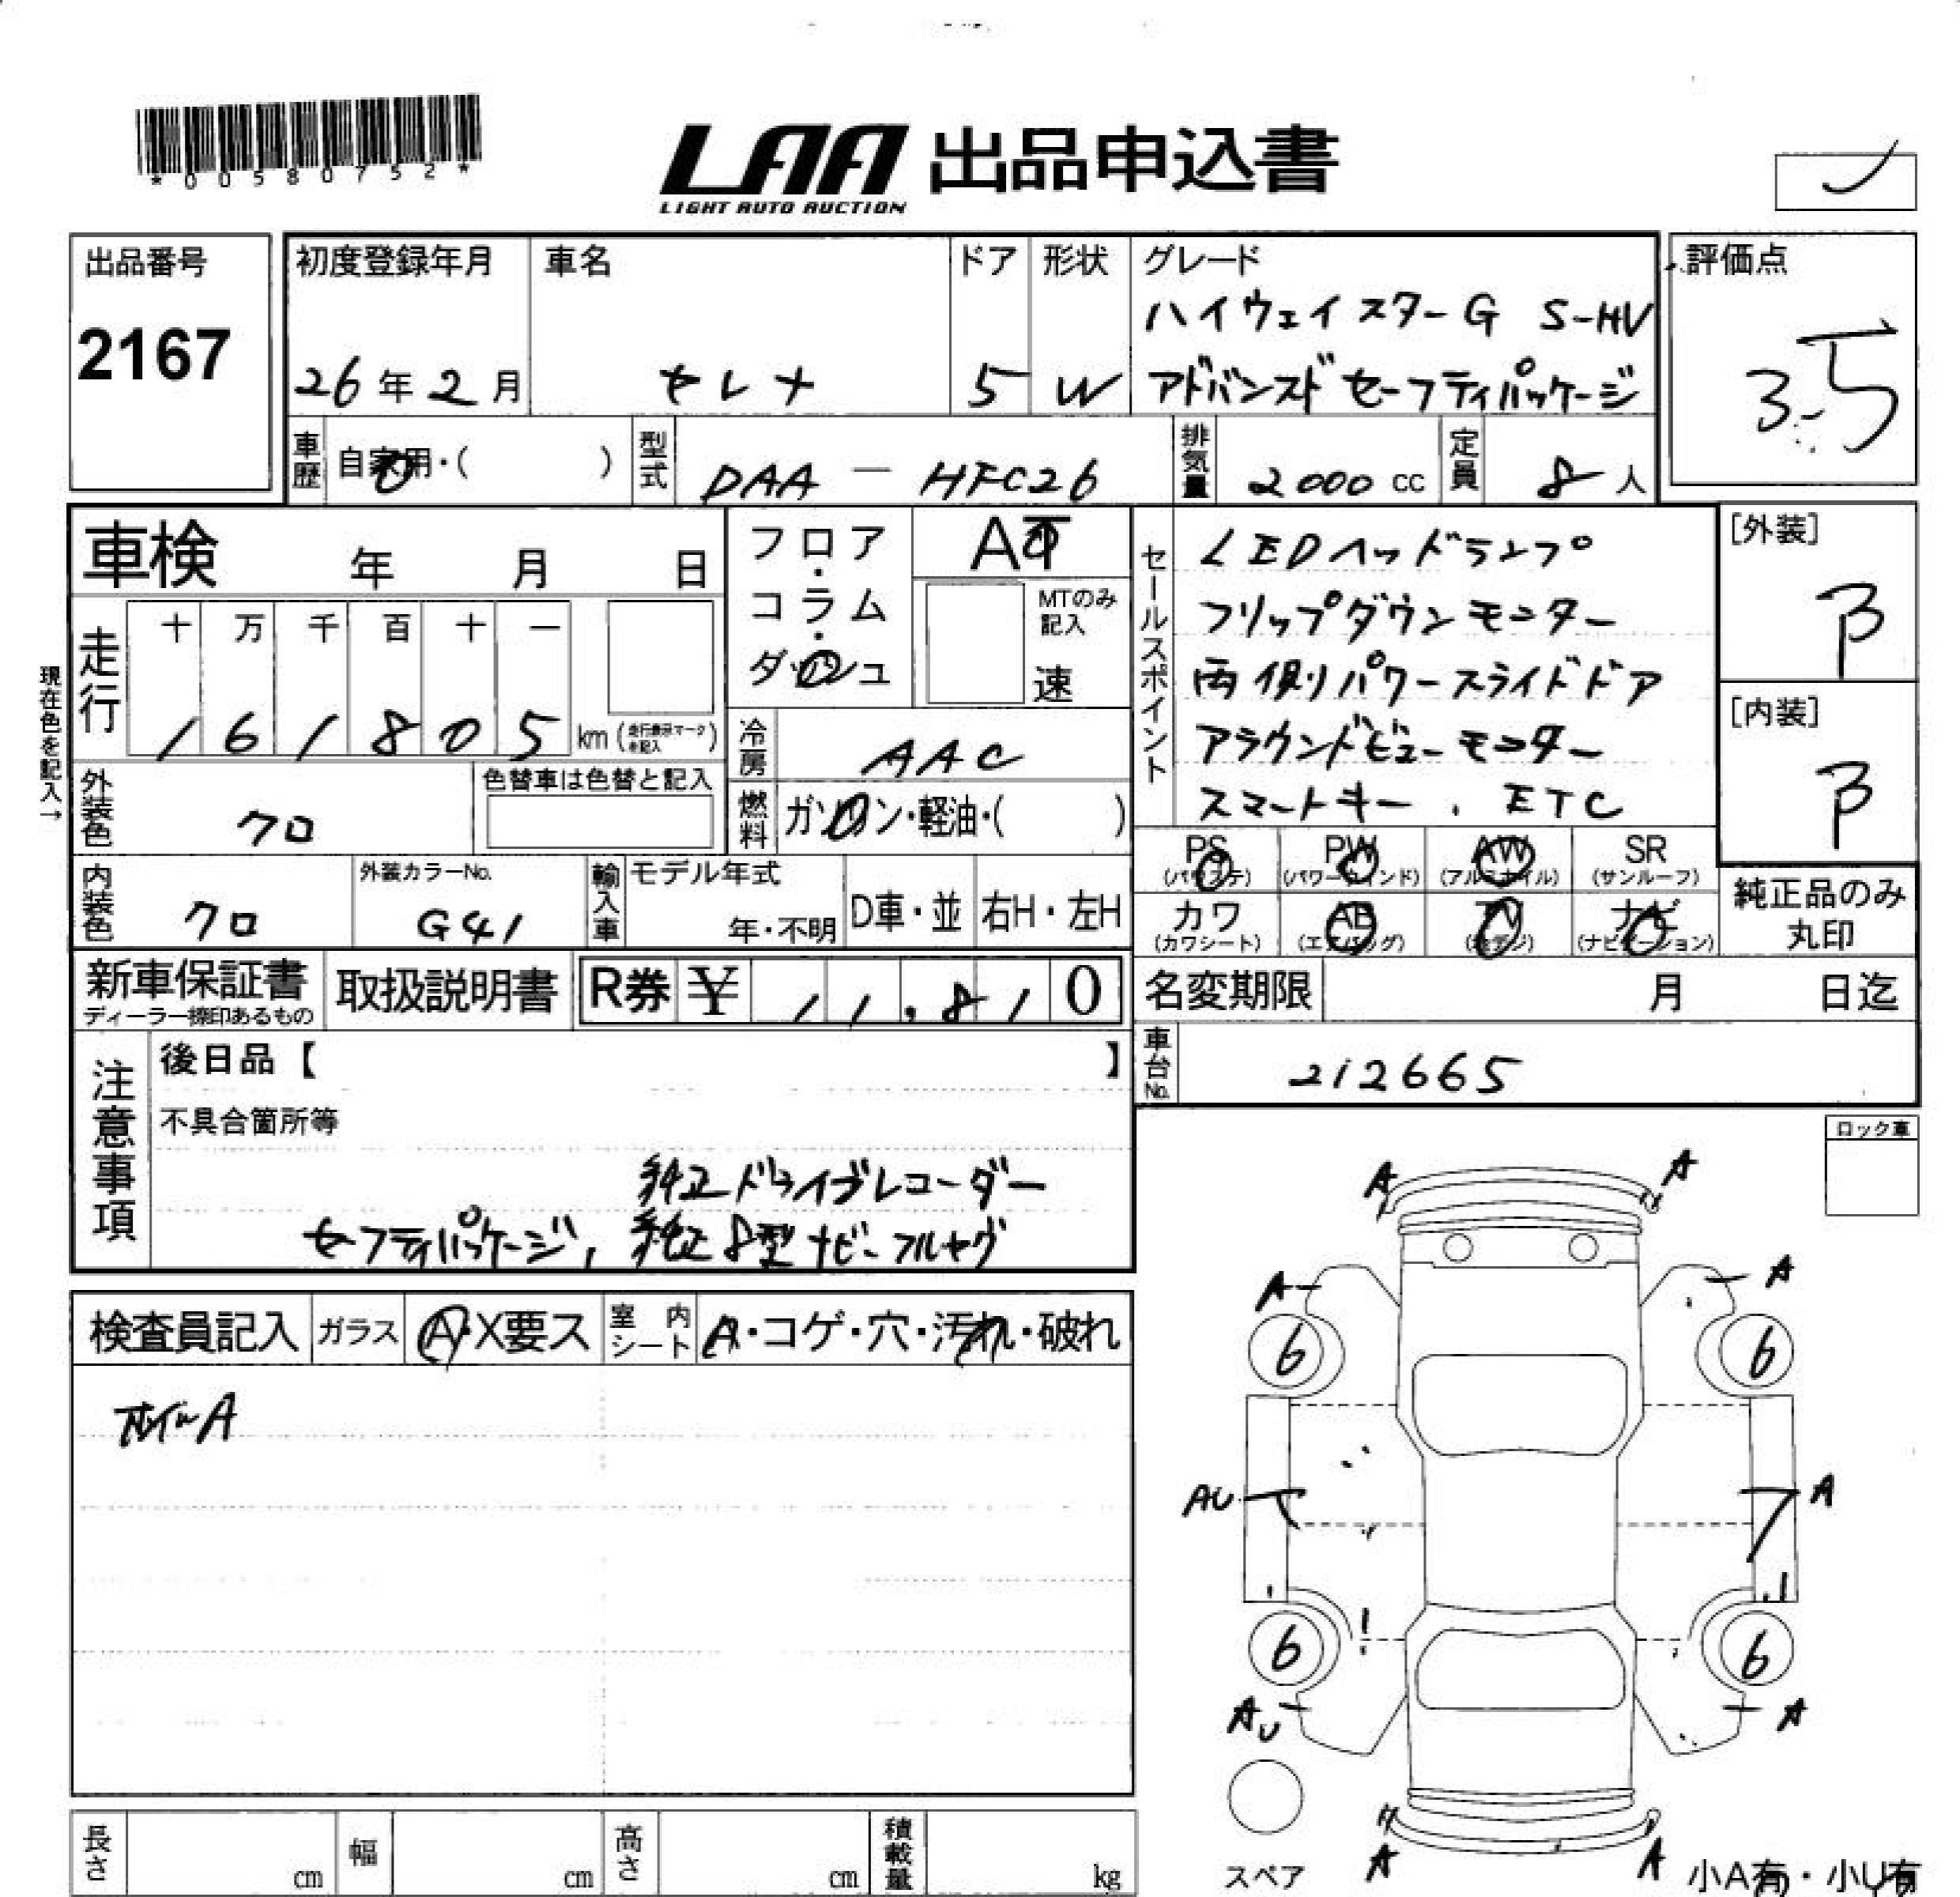 *00580752*
LAA 出品申込書
LIGHT AUTO AUCTION
出品番号
2167
初度登録年月
26年2月
車名
セレナ
ドア
5
形状
W
グレード
ハイウェイスターG S-HV
アドバンスドセーフティパッケージ
評価点
3.5
車歴
自家用・( )
型式
DAA-HFC26
排気量
2000 cc
定員
8人
車検 年 月 日
フロア・コラム・ダッシュ
AT
MTのみ記入
速
セールスポイント
LEDヘッドランプ
フリップダウンモニター
両側パワースライドドア
アラウンドビューモニター
スマートキー、ETC
[外装]
B
[内装]
B
現在色を記入→
走行
十 万 千 百 十 一
161805 km (走行表示マークを記入)
冷房
AAC
外装色
クロ
色替車は色替と記入
燃料
ガソリン・軽油・( )
PS (パワステ)
PW (パワーウインド)
AW (アルミホイル)
SR (サンルーフ)
カワ (カワシート)
AB (エアバッグ)
TV (地デジ)
ナビ (ナビゲーション)
純正品のみ丸印
内装色
クロ
外装カラーNo.
G41
輸入車
モデル年式
年・不明
D車・並
右H・左H
新車保証書
ディーラー捺印あるもの
取扱説明書
R券 ¥ 11,810
名変期限 月 日迄
車台No.
212665
注意事項
後日品【 】
不具合箇所等
純正ドライブレコーダー
セーフティパッケージ, 純正8型ナビ-フルセグ
ロック車
検査員記入
ガラス
A・X要ス
室内シート
A・コゲ・穴・汚れ・破れ
ホイルA
A A
A A
6 6
AU A
6 6
AU A
A A
スペア
小A有・小U有
長さ cm
幅 cm
高さ cm
積載量 kg